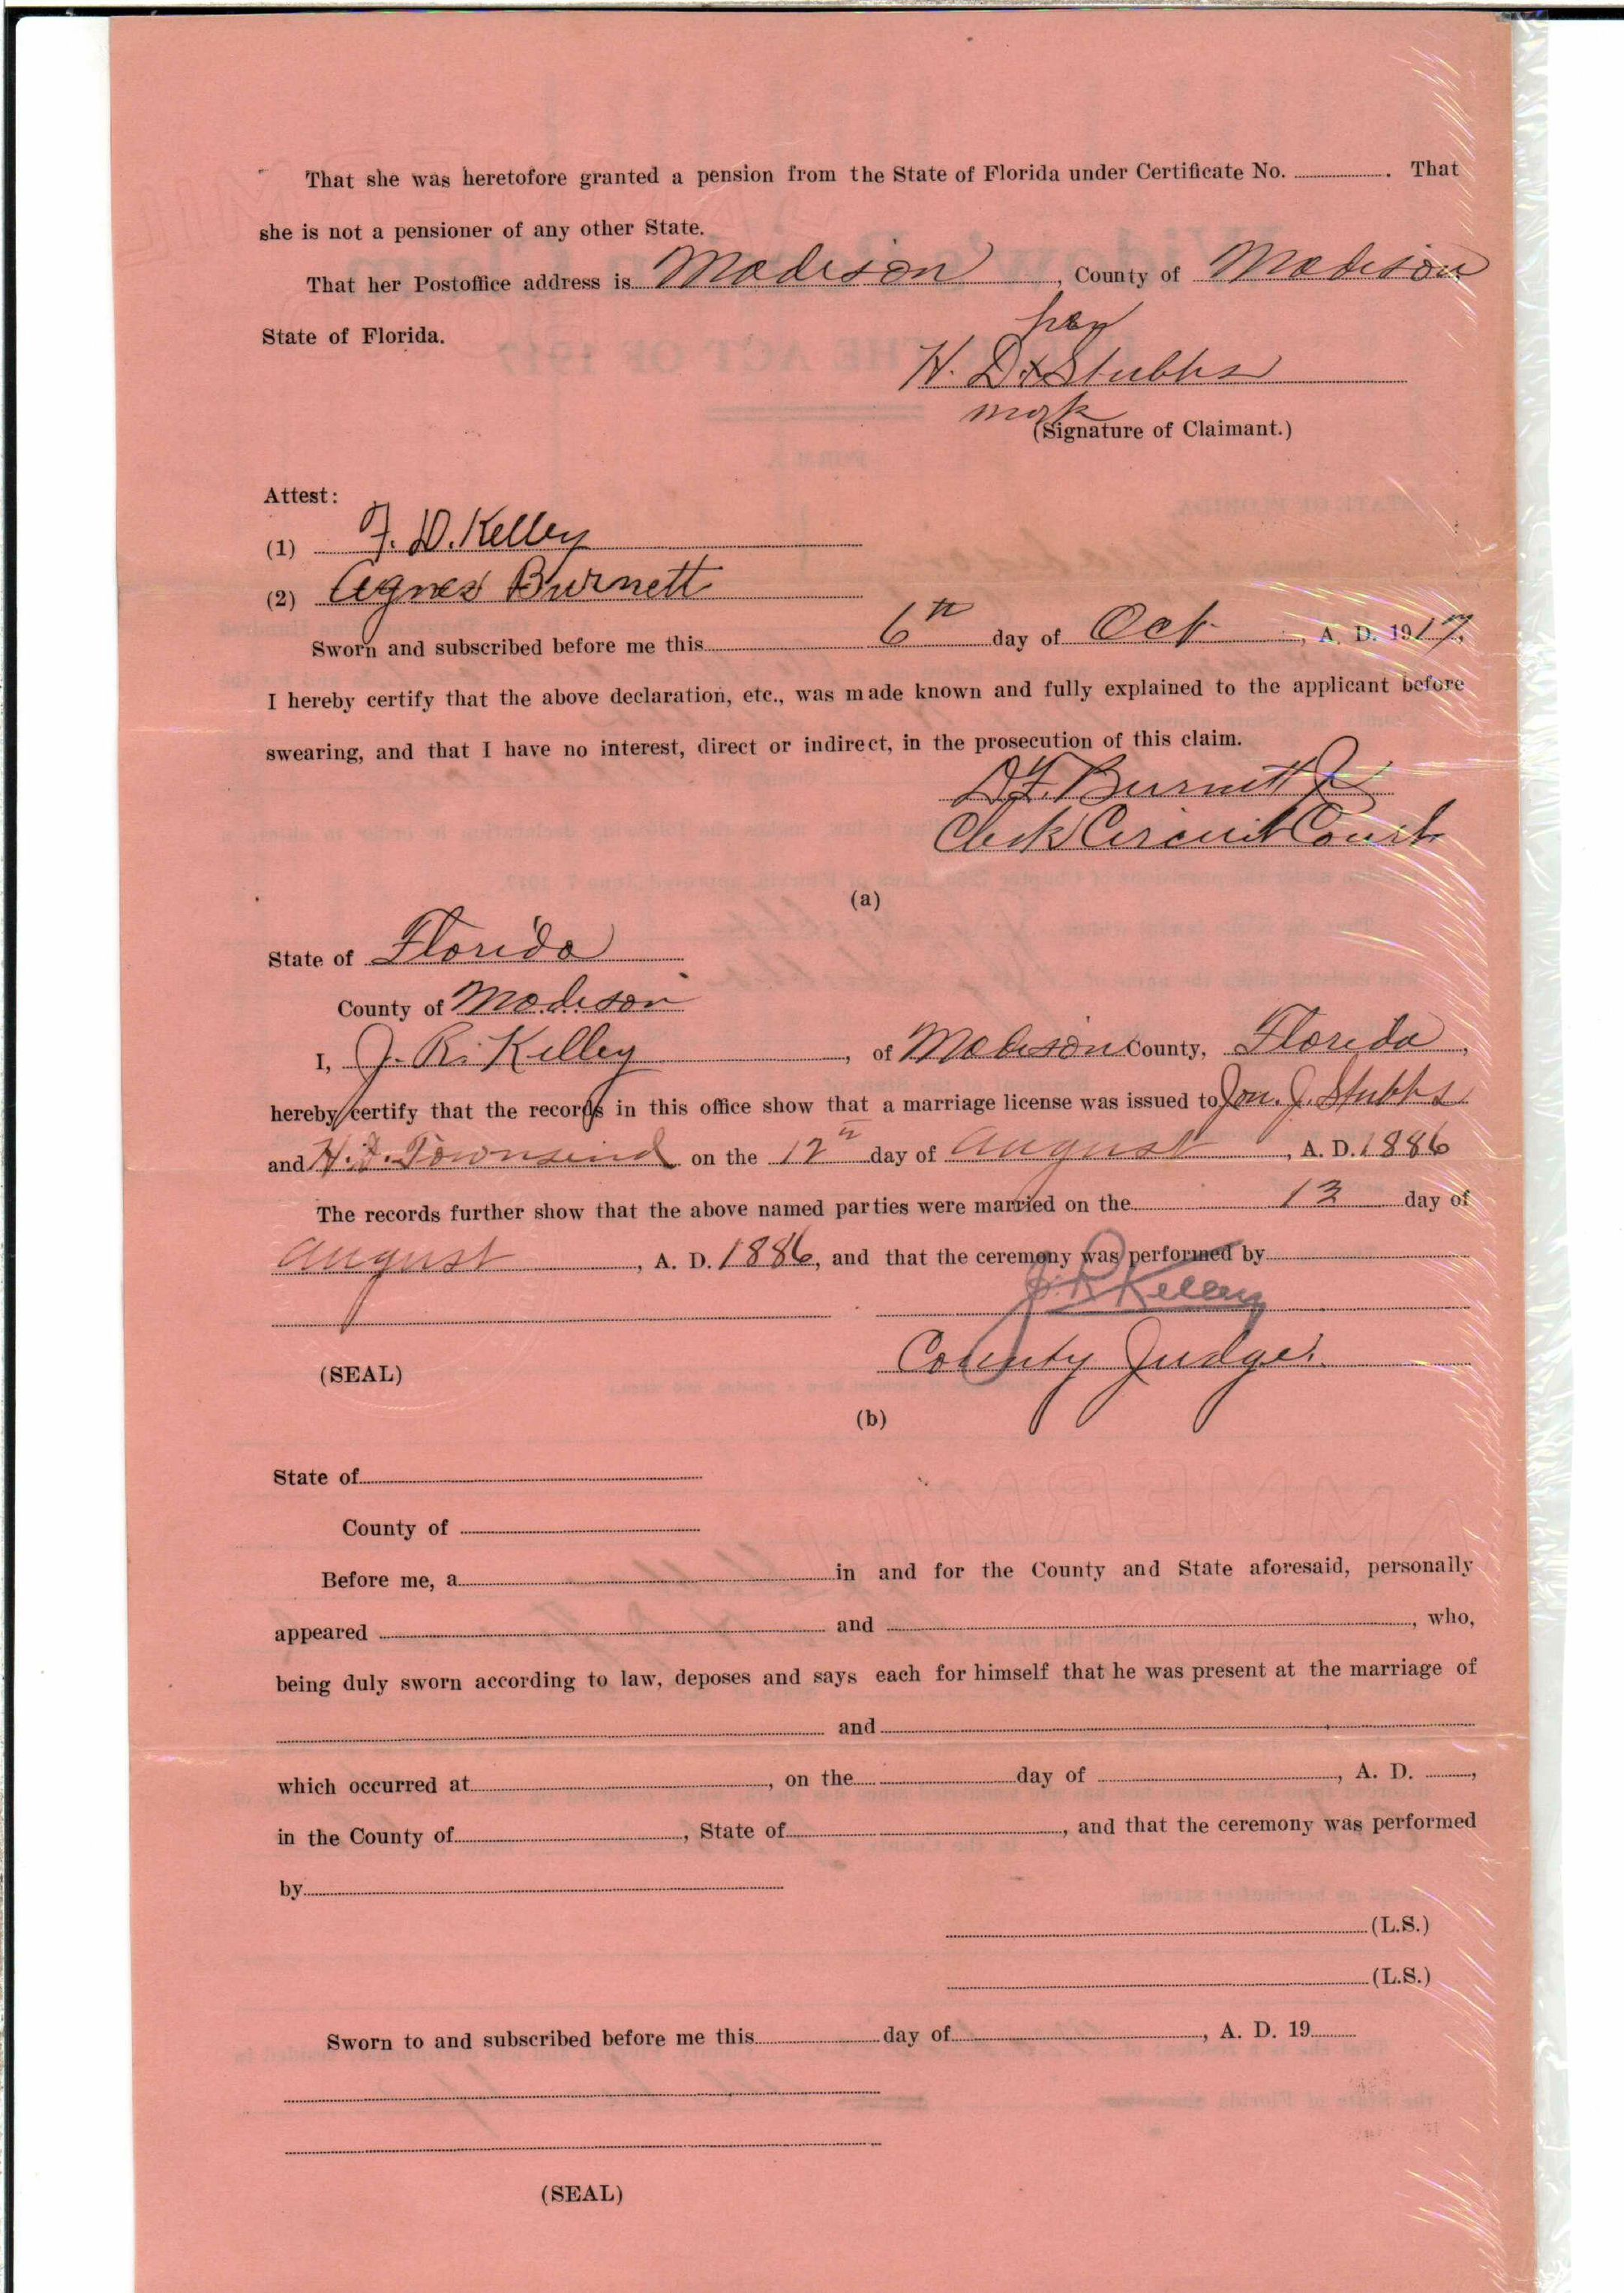 That she was heretofore granted a pension from the State of Florida under Certificate No. ............ . That
she is not a pensioner of any other State.
That her Postoffice address is Madison, County of Madison
State of Florida.
her
H. D x Stubbs
mark
(Signature of Claimant.)
Attest:
(1) F. D. Kelley
(2) Agnes Burnett
Sworn and subscribed before me this 6th day of Oct, A. D. 1917,
I hereby certify that the above declaration, etc., was made known and fully explained to the applicant before
swearing, and that I have no interest, direct or indirect, in the prosecution of this claim.
D.F. Burnett Jr
Clerk Circuit Court
(a)
State of Florida
County of Madison
I, J. R. Kelley, of Madison County, Florida,
hereby certify that the records in this office show that a marriage license was issued to Jon. J. Stubbs
and H. D. Townsend on the 12" day of August, A. D. 1886
The records further show that the above named parties were married on the 13 day of
August, A. D. 1886, and that the ceremony was performed by
J. R Kelley
County Judge.
(SEAL)
(b)
State of
County of
Before me, a in and for the County and State aforesaid, personally
appeared and , who,
being duly sworn according to law, deposes and says each for himself that he was present at the marriage of
and
which occurred at , on the day of , A. D. ,
in the County of , State of , and that the ceremony was performed
by
(L.S.)
(L.S.)
Sworn to and subscribed before me this day of , A. D. 19
(SEAL)